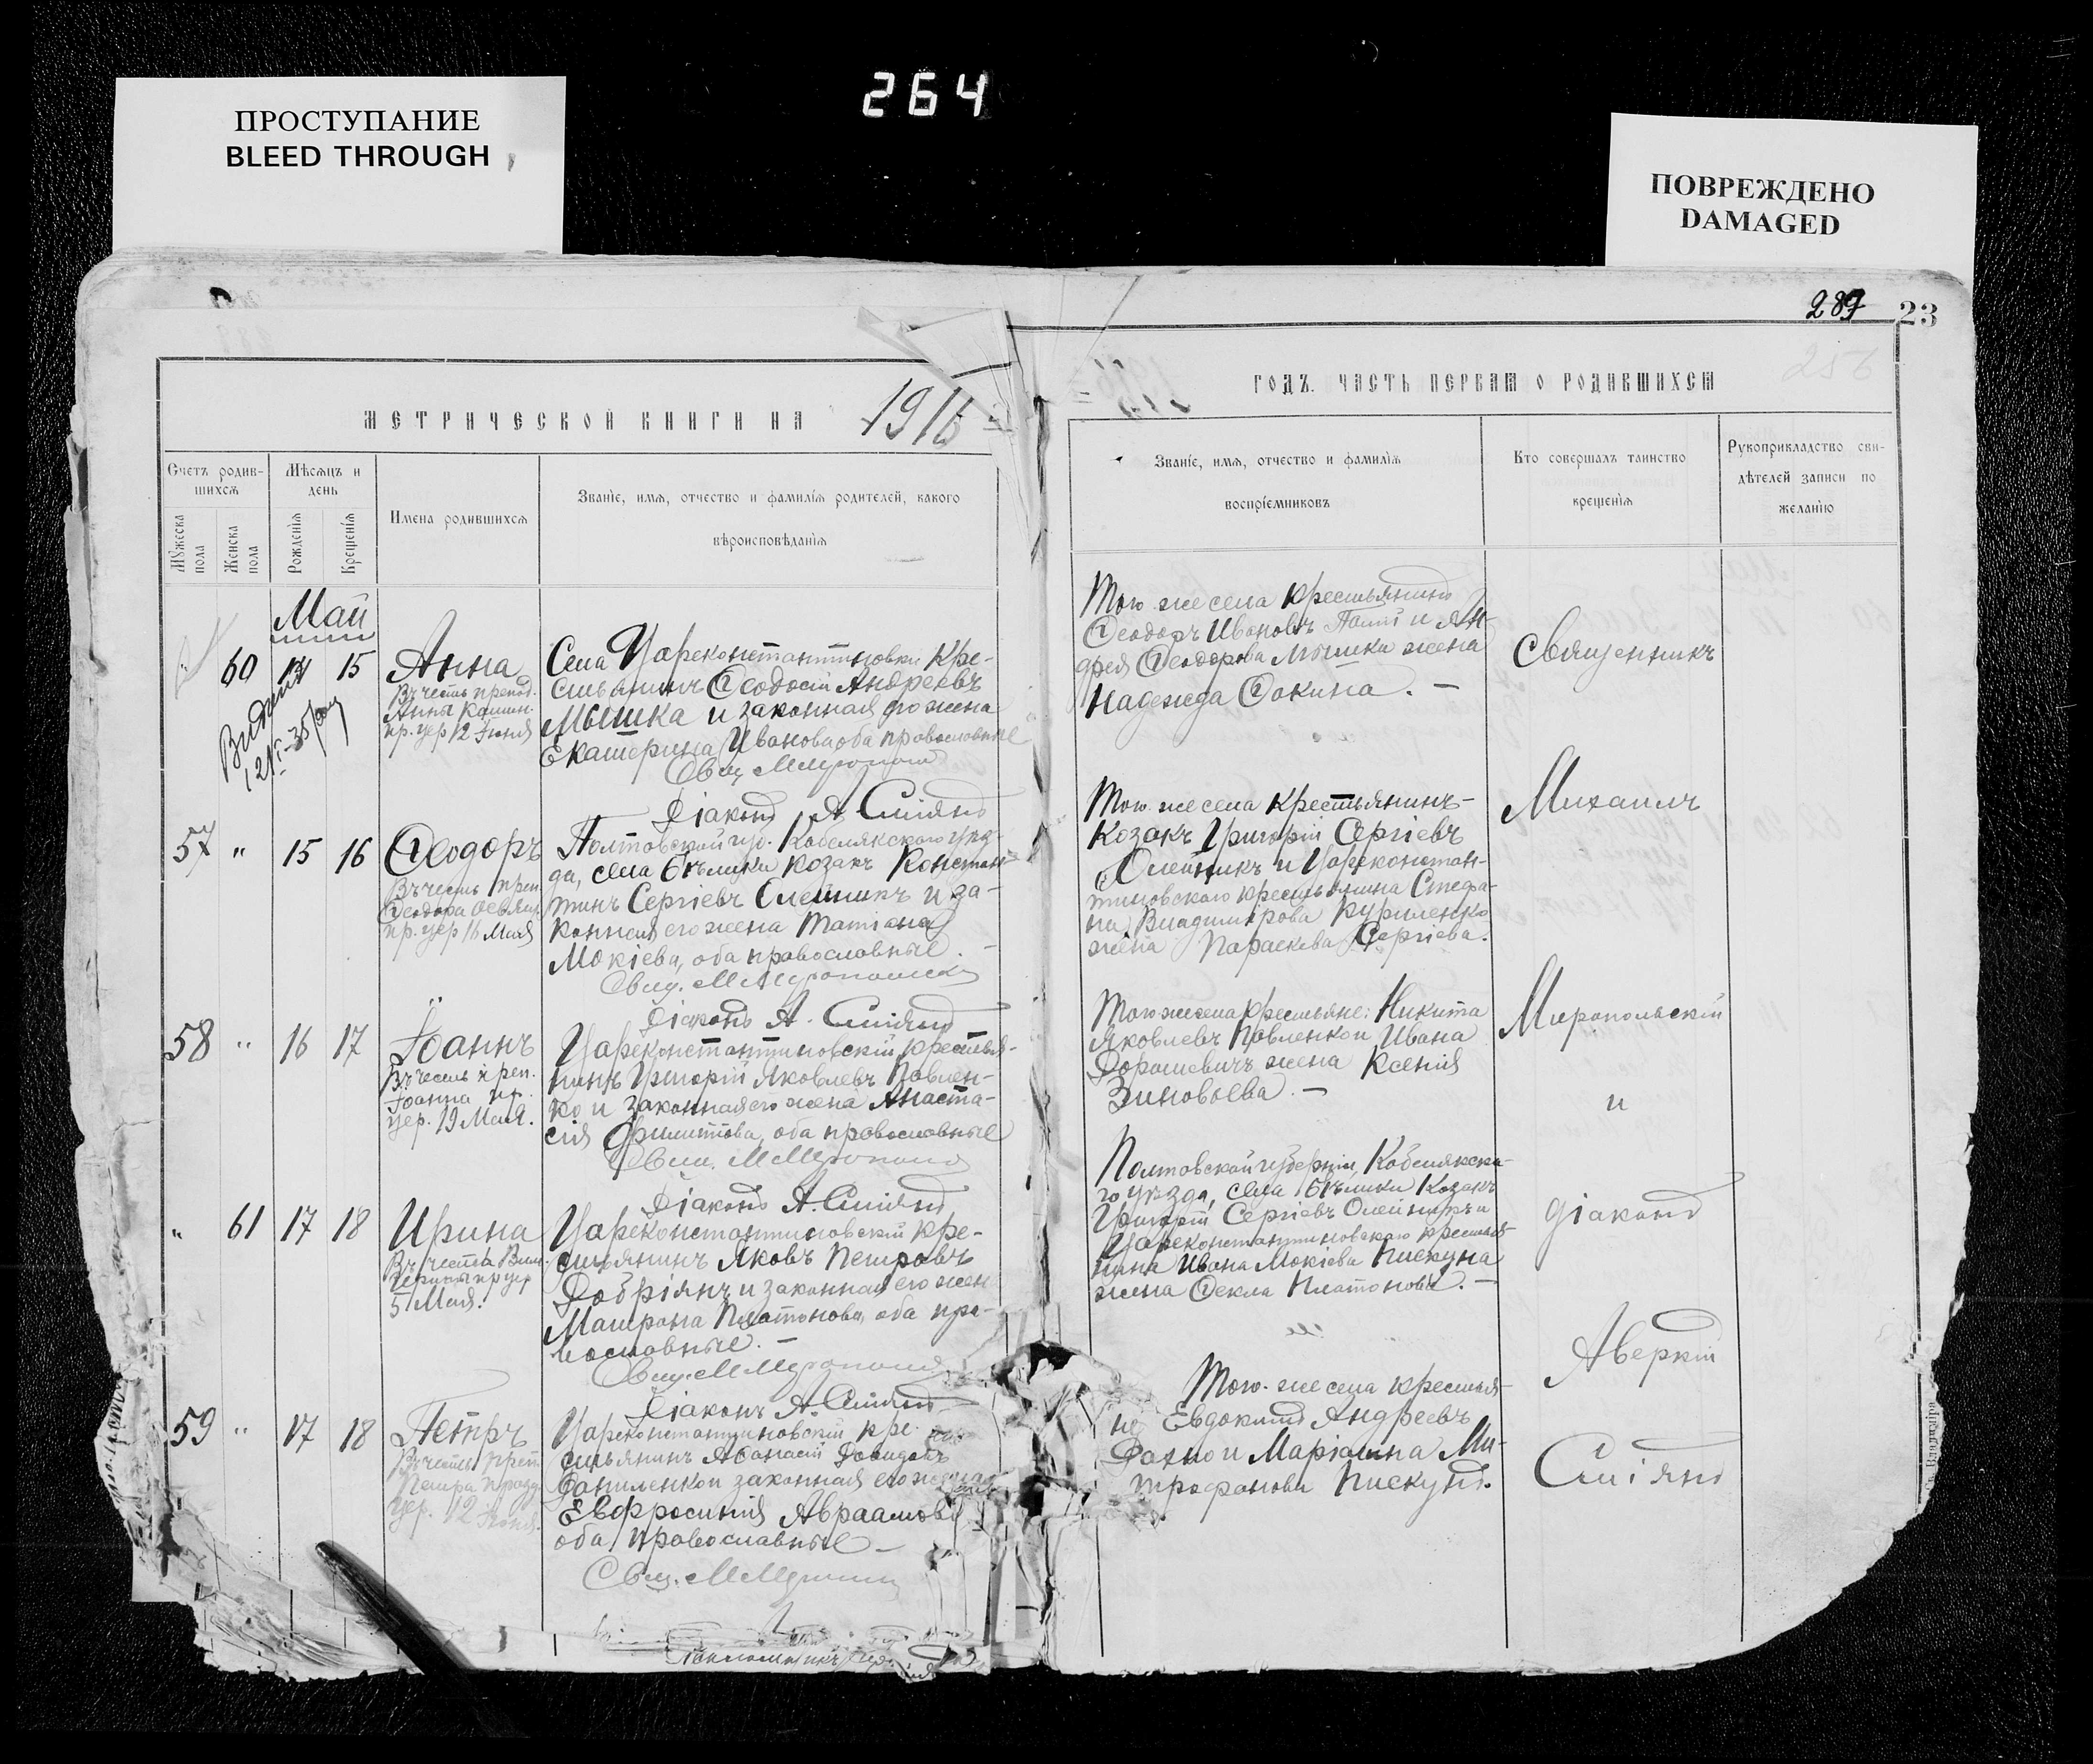 264
ПРОСТУПАНИЕ
BLEED THROUGH
ПОВРЕЖДЕНО
DAMAGED
289
23
256
МЕТРИЧЕСКОЙ КНИГИ НА 1916
ГОДЪ. ЧАСТЬ ПЕРВАЯ О РОДИВШИХСЯ
Счетъ родив-
шихся
Мужеска
пола
Женска
пола
Мѣсяцъ и
день
Рожденія
Крещенія
Имена родившихся
Званіе, имя, отчество и фамилія родителей, какого
вѣроисповѣданія
Званіе, имя, отчество и фамилія
воспріемниковъ
Кто совершалъ таинство
крещенія
Рукоприкладство сви-
дѣтелей записи по
желанію
Май
60 14 15
Анна
Въ честь препод.
Анны
пр. цер 12 Іюня
Села Цареконстантиновки кре-
стьянинъ Ѳеодосій Андреевъ
Мышка и законная его жена
Екатерина Иванова оба православные
Свящ. М Миропол
Діаконъ А. Сиіянъ
Того же села крестьянинъ
Ѳеодоръ Ивановъ и Ан-
дрея Ѳеодорова Мышки жена
Надежда Ѳокина. —
57 " 15 16
Ѳеодоръ
Въ честь преп
Ѳеодора Освящ.
пр. цер 16 Мая
Полтавской губ. Кобелякского уѣз-
да, села Бѣлики козакъ Констан-
тинъ Сергіевъ Олейникъ и за-
конная его жена Татіана
Мокіева, оба православные. —
Свящ. М Миропольскі
Діаконъ А. Сиіянъ
Того же села крестьянинъ-
Козакъ Григорій Сергіевъ
Олейникъ и Цареконстан-
тиновского крестьянина Стефа-
на Владимірова Куриленко
жена Параскева Сергіева.
58 " 16 17
Іоаннъ
Въ честь преп.
Іоанна пр.
цер. 19 Мая.
Цареконстантиновскій крестья-
нинъ Григорій Яковлевъ Павлен-
ко и законная его жена Анаста-
сія Филиппова, оба православные
Свящ. М Миропол
Діаконъ А. Сиіянъ
Того же села крестьяне: Никита
Яковлевъ Павленко и Ивана
Дорошевичъ жена Ксенія
Зиновьева. —
" 61 17 18
Ирина
Въ честь Вмч.
Ирины пр цер
5 Мая.
Цареконстантиновскій кре-
стьянинъ Яковъ Петровъ
Добріянъ и законная его жен
Матрона Платонова, оба пра-
вославные. —
Свящ. М Миропол
Діаконъ А. Сиіянъ
Полтавской губерніи, Кобелякска-
го уѣзда, села Бѣлики Козакъ
Григорій Сергіевъ Олейникъ и
Цареконстантиновского крестья-
нина Ивана Мокіева Пискуна
жена Ѳекла Платонова. —
59 " 17 18
Петръ
Въ честь преп.
Петра празд
цер. 12 Іюня.
Цареконстантиновскій кре-
стьянинъ Аѳанасій Давидовъ
Даниленко и законная его жена
Евфросинія Авраамова
оба православные —
Свящ. М Миропол
Того же села крестья-
не Евдокимъ Андреевъ
Дахно и Маріанна Ми-
трофанова Пискунъ.
Священникъ
Михаилъ
Миропольскій
и
діаконъ
Аверкій
Сиіянъ